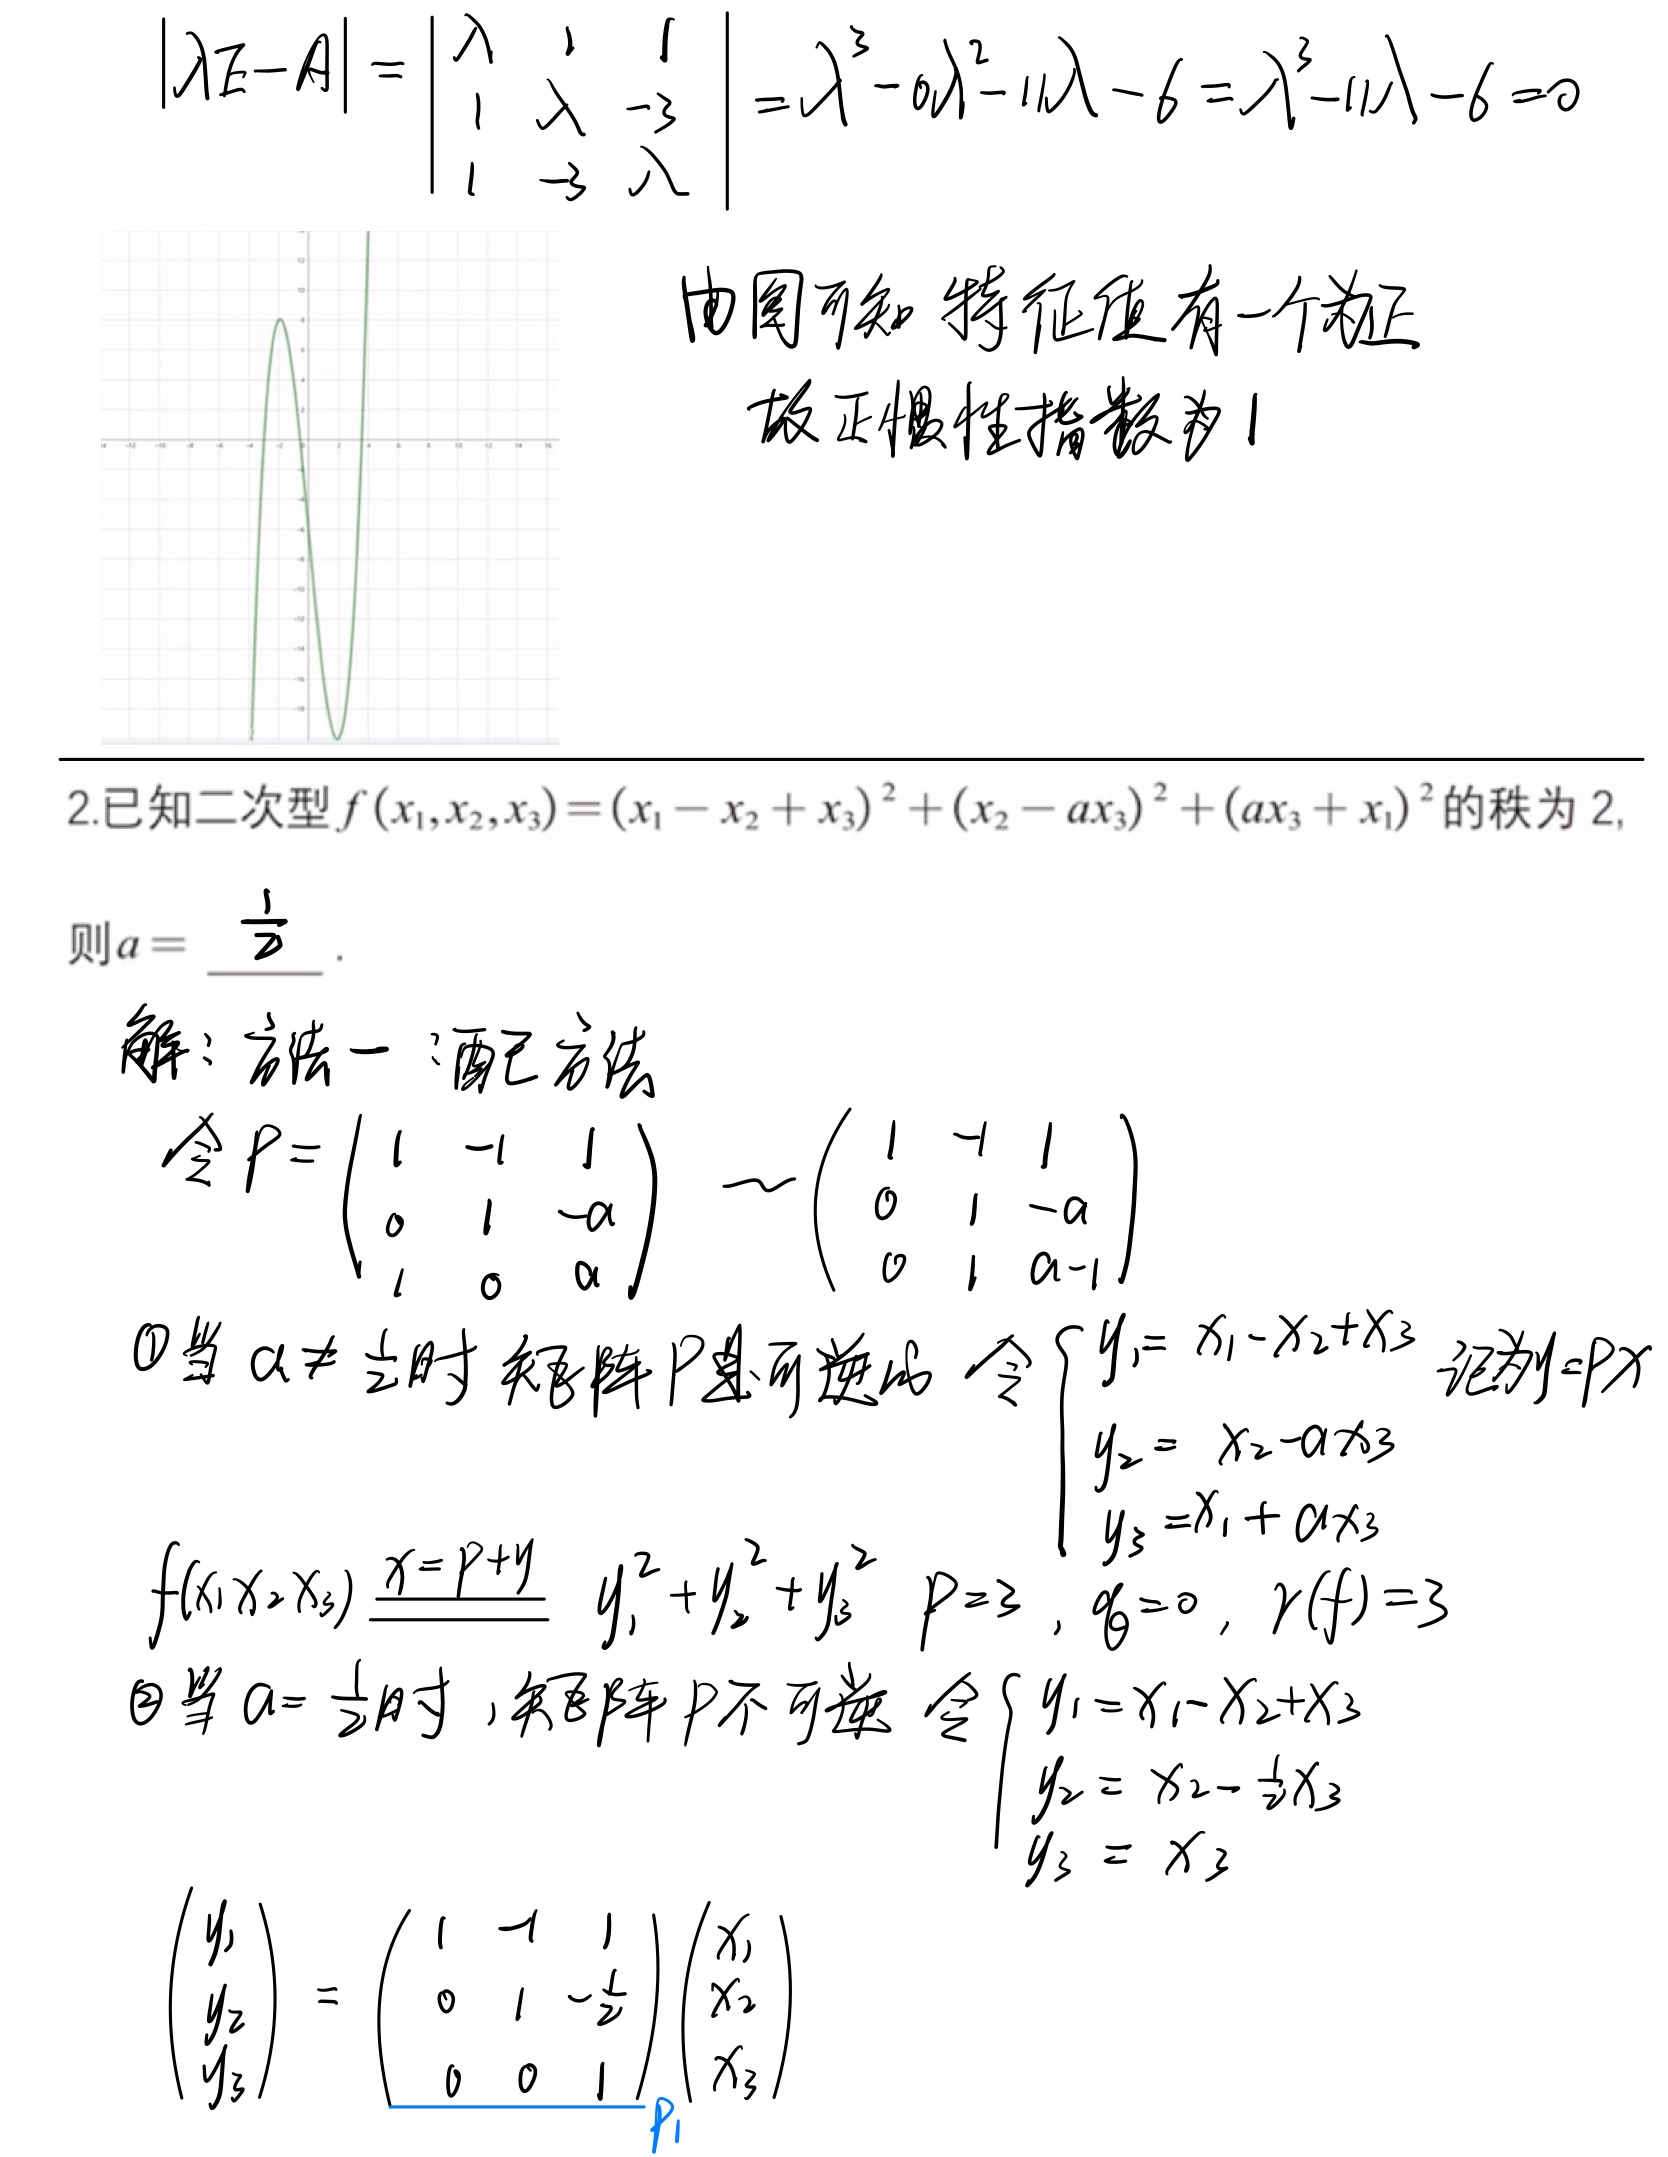 |λE-A| = | λ 1 1 | = λ³-0λ²-11λ-6 = λ³-11λ-6=0
1 λ -3
1 -3 λ
由图可知 特征值有一个为正
故正惯性指数为1
2.已知二次型 f(x₁,x₂,x₃)=(x₁-x₂+x₃)²+(x₂-ax₃)²+(ax₃+x₁)²的秩为 2,
则a= 1/2 .
解:方法一:配方法
令P= ( 1 -1 1 ) ~ ( 1 -1 1 )
0 1 -a 0 1 -a
1 0 a 0 1 a-1
①当 a≠1/2时 矩阵P是可逆的 令 { y₁= x₁-x₂+x₃ 记为y=Px
y₂= x₂-ax₃
y₃=x₁+ax₃
f(x₁x₂x₃) x=P+y y₁²+y₂²+y₃² p=3, q=0, r(f)=3
②当 a=1/2时,矩阵P不可逆 令 { y₁=x₁-x₂+x₃
y₂= x₂-1/2x₃
y₃= x₃
( y₁ ) = ( 1 -1 1 ) ( x₁ )
y₂ 0 1 -1/2 x₂
y₃ 0 0 1 x₃
P₁